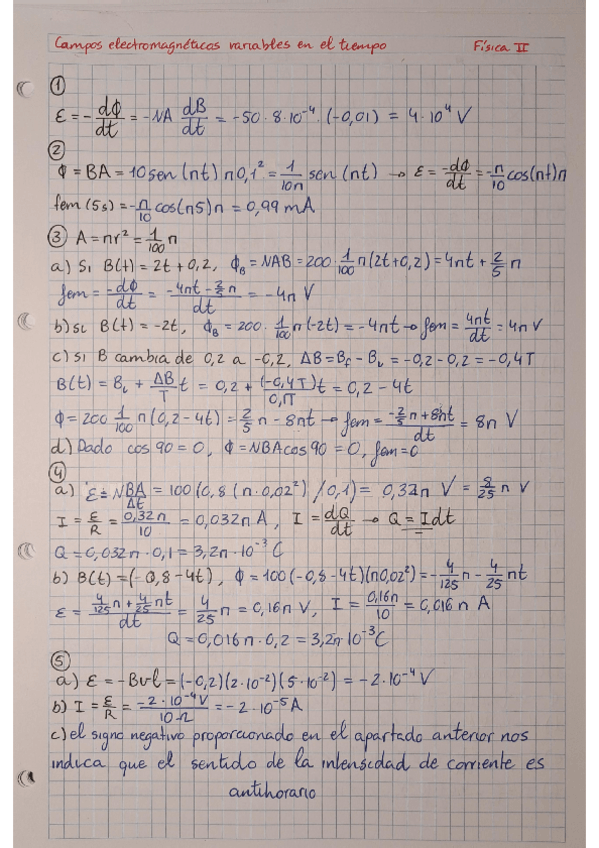 Campos electromagnéticos variables en el tiempo Física II
①
ε = - dϕ/dt = -NA dB/dt = -50·8·10⁻⁴·(-0,01) = 4·10⁴ V
②
ϕ = BA = 10 sen(πt) π0,1² = 1/10 π sen(πt) → ε = -dϕ/dt = -π/10 cos(πt)π
fem(5s) = -π/10 cos(π5)π = 0,99 mA
③ A = πr² = 1/100 π
a) Si B(t) = 2t + 0,2, ϕ_B = NAB = 200·1/100 π(2t+0,2) = 4πt + 2/5 π
fem = -dϕ/dt = (-4πt - 2/5 π)/dt = -4π V
b) si B(t) = -2t, ϕ_B = 200·1/100 π(-2t) = -4πt → fem = 4πt/dt = 4π V
c) si B cambia de 0,2 a -0,2, ΔB = B_f - B_i = -0,2 - 0,2 = -0,4T
B(t) = B_i + ΔB/T t = 0,2 + (-0,4T)/0,1T t = 0,2 - 4t
ϕ = 200 1/100 π(0,2 - 4t) = 2/5 π - 8πt → fem = (-2/5 π + 8πt)/dt = 8π V
d) Dado cos 90 = 0, ϕ = NBA cos 90 = 0, fem = 0
④
a) ε = NBA/Δt = 100(0,8(π·0,02²)/0,1) = 0,32π V = 8/25 π V
I = ε/R = 0,32π/10 = 0,032π A, I = dQ/dt → Q = Idt
Q = 0,032π·0,1 = 3,2π·10⁻³ C
b) B(t) = (-0,8 - 4t), ϕ = 100(-0,8 - 4t)(π0,02²) = -4/125 π - 4/25 πt
ε = (4/125 π + 4/25 πt)/dt = 4/25 π = 0,16π V, I = 0,16π/10 = 0,016π A
Q = 0,016π·0,2 = 3,2π·10⁻³ C
⑤
a) ε = -Bvl = (-0,2)(2·10⁻²)(5·10⁻²) = -2·10⁻⁴ V
b) I = ε/R = -2·10⁻⁴V/10Ω = -2·10⁻⁵ A
c) el signo negativo proporcionado en el apartado anterior nos
indica que el sentido de la intensidad de corriente es
antihorario